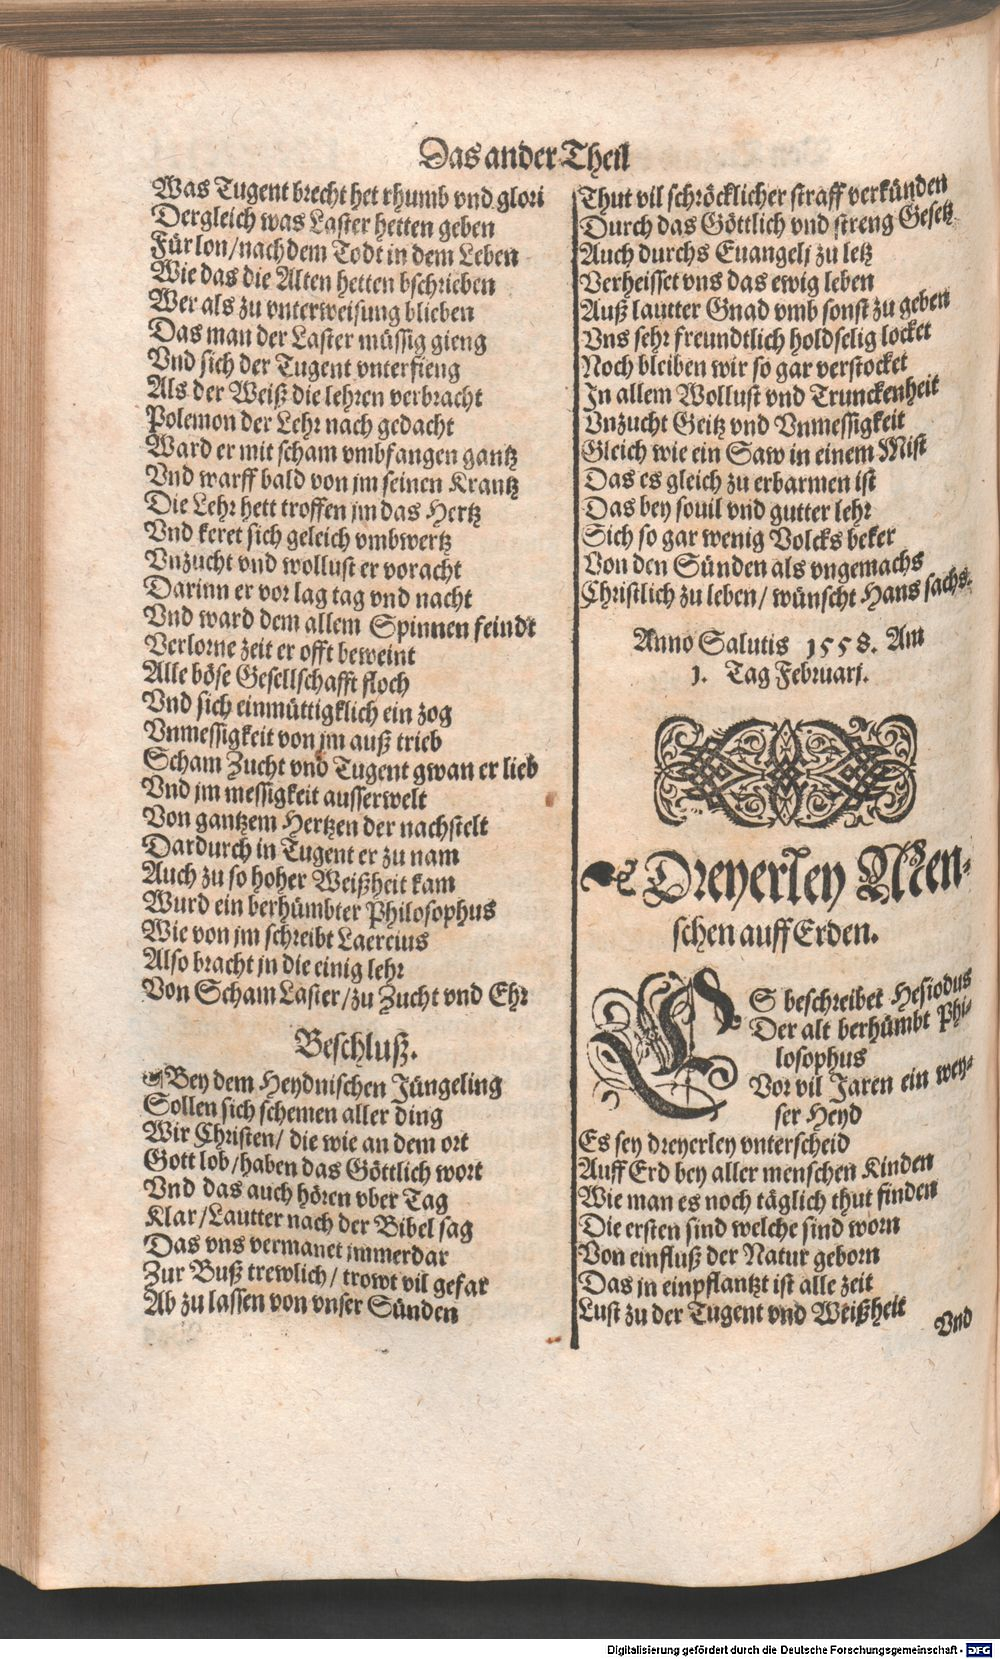 Das ander Theil
Was Tugent brecht het rhumb vnd glori
Dergleich was Laster hetten geben
Für lon/nach dem Todt in dem Leben
Wie das die Alten hetten bschrieben
Wer als zu vnterweisung blieben
Das man der Laster müssig gieng
Vnd sich der Tugent vnterfieng
Als der Weiß die lehren verbracht
Polemon der Lehr nach gedacht
Ward er mit scham vmbfangen gantz
Vnd warff bald von jm seinen Krantz
Die Lehr hett troffen jm das Hertz
Vnd keret sich geleich vmbwertz
Vnzucht vnd wollust er voracht
Darinn er vor lag tag vnd nacht
Vnd ward dem allem Spinnen feindt
Verlorne zeit er offt beweint
Alle böse Gesellschafft floch
Vnd sich einmüttigklich ein zog
Vnmessigkeit von jm auß trieb
Scham Zucht vnd Tugent gwan er lieb
Vnd jm messigkeit ausserwelt
Von gantzem Hertzen der nachstelt
Dardurch in Tugent er zu nam
Auch zu so hoher Weißheit kam
Wurd ein berhümbter Philosophus
Wie von jm schreibt Laercius
Also bracht jn die einig lehr
Von Scham Laster/zu Zucht vnd Ehr
Beschluß.
Bey dem Heydnischen Jüngeling
Sollen sich schemen aller ding
Wir Christen/ die wie an dem ort
Gott lob/haben das Göttlich wort
Vnd das auch hören vber Tag
Klar/Lautter nach der Bibel sag
Das vns vermanet jmmerdar
Zur Buß trewlich/ trowt vil gefar
Ab zu lassen von vnser Sünden
Thut vil schröcklicher straff verkünden
Durch das Göttlich vnd streng Gesetz
Auch durchs Euangelj zu letz
Verheisset vns das ewig leben
Auß lautter Gnad vmb sonst zu geben
Vns sehr freundtlich holdselig locket
Noch bleiben wir so gar verstocket
In allem Wollust vnd Trunckenheit
Vnzucht Geitz vnd Vnmessigkeit
Gleich wie ein Saw in einem Mist
Das es gleich zu erbarmen ist
Das bey souil vnd gutter lehr
Sich so gar wenig Volcks beker
Von den Sünden als vngemachs
Christlich zu leben/ wünscht Hans sachs.
Anno Salutis 1558. Am
1. Tag Februarj.
Dreyerley Men-
schen auff Erden.
ES beschreibet Hesiodus
Der alt berhümbt Phi-
losophus
Vor vil Jaren ein wey-
ser Heyd
Es sey dreyerley vnterscheid
Auff Erd bey aller menschen Kinden
Wie man es noch täglich thut finden
Die ersten sind welche sind worn
Von einfluß der Natur geborn
Das jn einpflantzt ist alle zeit
Lust zu der Tugent vnd Weißheit
Vnd
Digitalisierung gefördert durch die Deutsche Forschungsgemeinschaft - DFG